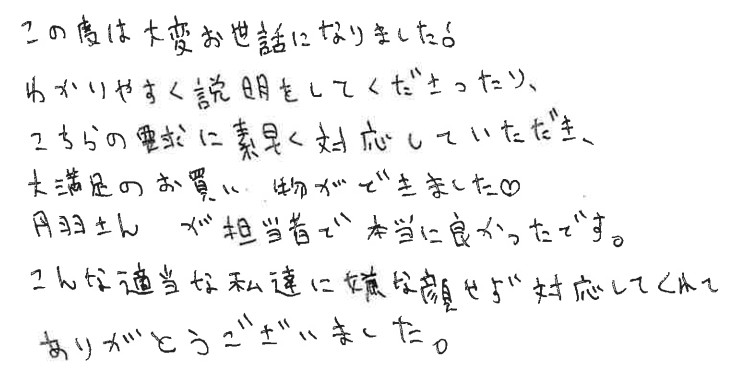 この度は大変お世話になりました!
わかりやすく説明をしてくださったり、
こちらの要求に素早く対応していただき、
大満足のお買い物ができました♡
丹羽さんが担当者で本当に良かったです。
こんな適当な私達に嫌な顔せず対応してくれて
ありがとうございました。